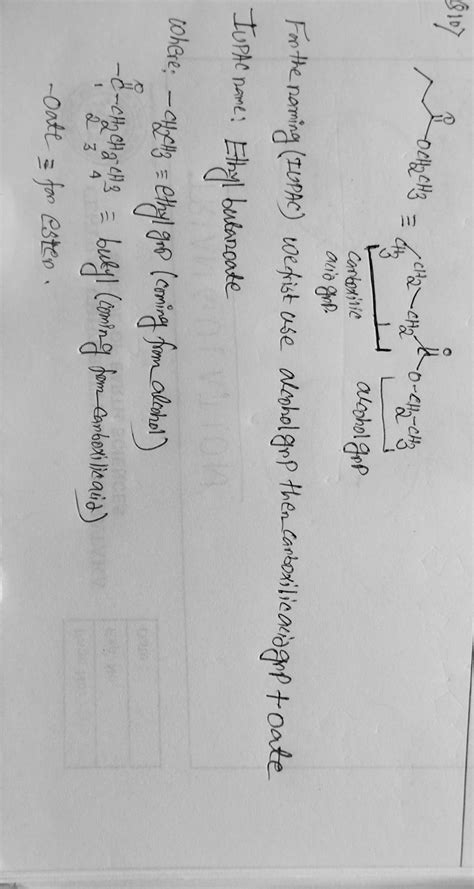 Q10)
O
OCH2CH3 ≡ CH3 CH2 CH2 C O O-CH2-CH3
carboxilic acid grp
alcohol grp
For the naming (IUPAC) we first use alcohol grp then carboxilic acid grp + oate
IUPAC name: Ethyl butanoate
where; -CH2CH3 ≡ ethyl grp (coming from alcohol)
O
-C-CH2CH2CH3 ≡ butyl (coming from carboxilic acid)
1 2 3 4
-oate ≡ for ester.